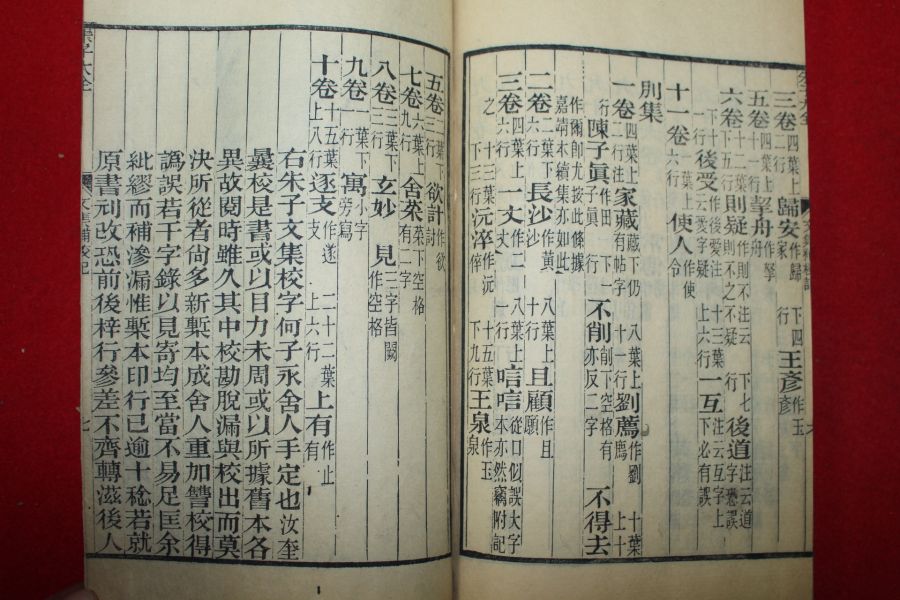 三卷四葉上二行歸安作歸家下四行王彥作玉彥
五卷四葉上十一行拏舟作孥舟
六卷十二葉下五行則疑作則不注云則不之疑下七行後道注云道字恐誤
下十葉一行後受作後愛注云愛字疑十三葉上六行一互注云互字上下必有誤
十一卷葉上六行使人作使令
別集
一卷四葉上二行家藏藏下仍有帖字八葉上十一行劉薦作劉廌十葉上十
行陳子眞作田子眞下一行不削削下空格有亦反二字不得去
作爾削尤按此條據嘉靖本續集亦如此
二卷二葉下六行長沙作黃沙八葉上十行且顧作且願
三卷四葉上六行一丈作二丈八葉上二行唁唁從口似誤大字本亦然竊附記
之十三葉下六行沅淬作沅倅十五葉下九行王泉作玉泉
五卷二葉下三行欲計作欲討
七卷六葉上九行舍菜菜下空格有二字
八卷三葉下三行玄妙見三字皆闕作空格
九卷一葉下一行寓小字旁寫
十卷十五葉上八行逐支作遂支二十二葉上六行上有作止有
右朱子文集校字何子永舍人手定也汝奎
曩校是書或以目力未周或以所據舊本各
異故閱時雖久其中校勘脫漏與校出而莫
決所從者尙多新槧本成舍人重加讐校得
譌誤若干字錄以見寄均至當不易足匡余
紕繆而補滲漏惟槧本印行已逾十稔若就
原書刓改恐前後梓行參差不齊轉滋後人